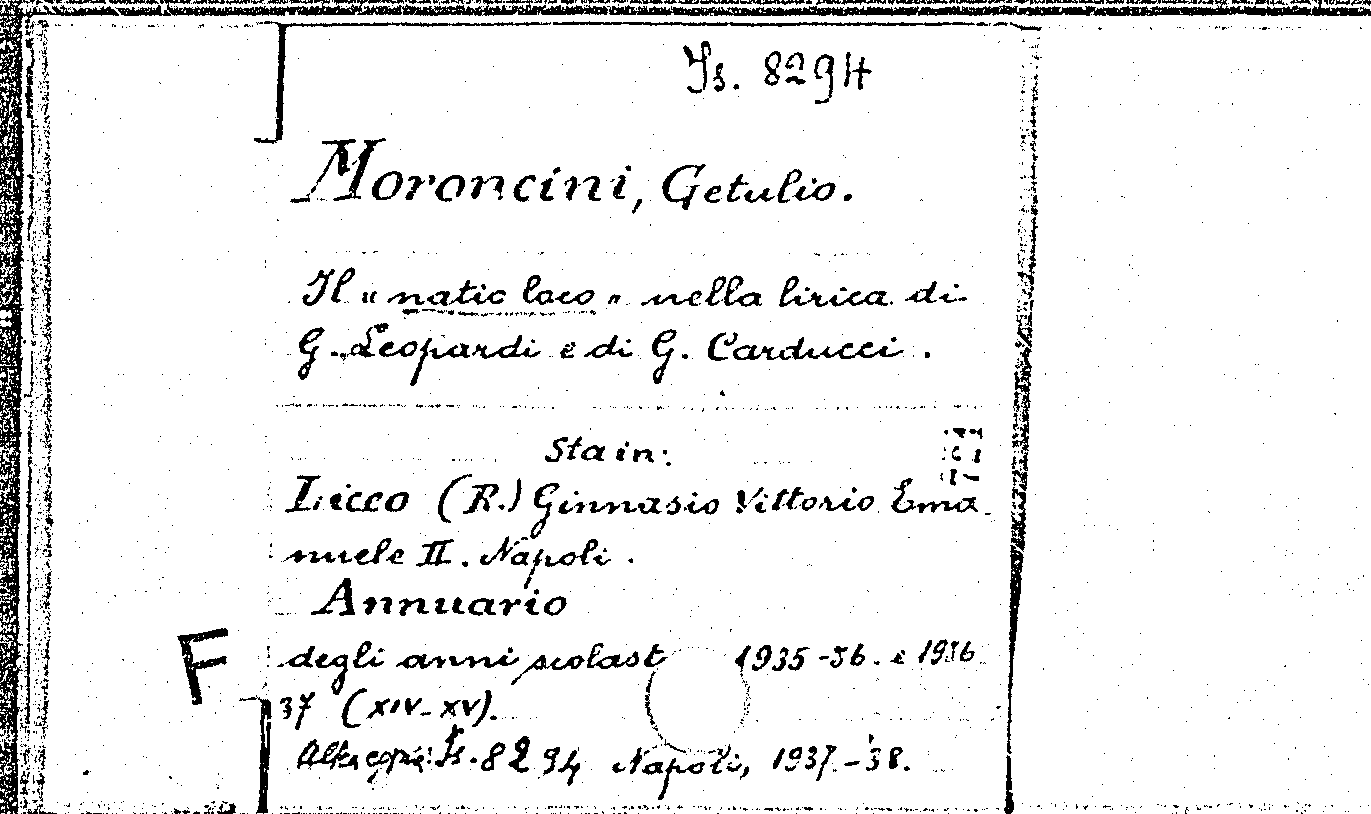 Is. 8294
Moroncini, Getulio.
Il "natio loco" nella lirica di
G. Leopardi e di G. Carducci.
Sta in:
Liceo (R.) Ginnasio Vittorio Ema-
nuele II. Napoli.
Annuario
degli anni scolast 1935-36. e 1936
F
37 (XIV-XV).
Altra copia: Is. 8294 Napoli, 1937-38.